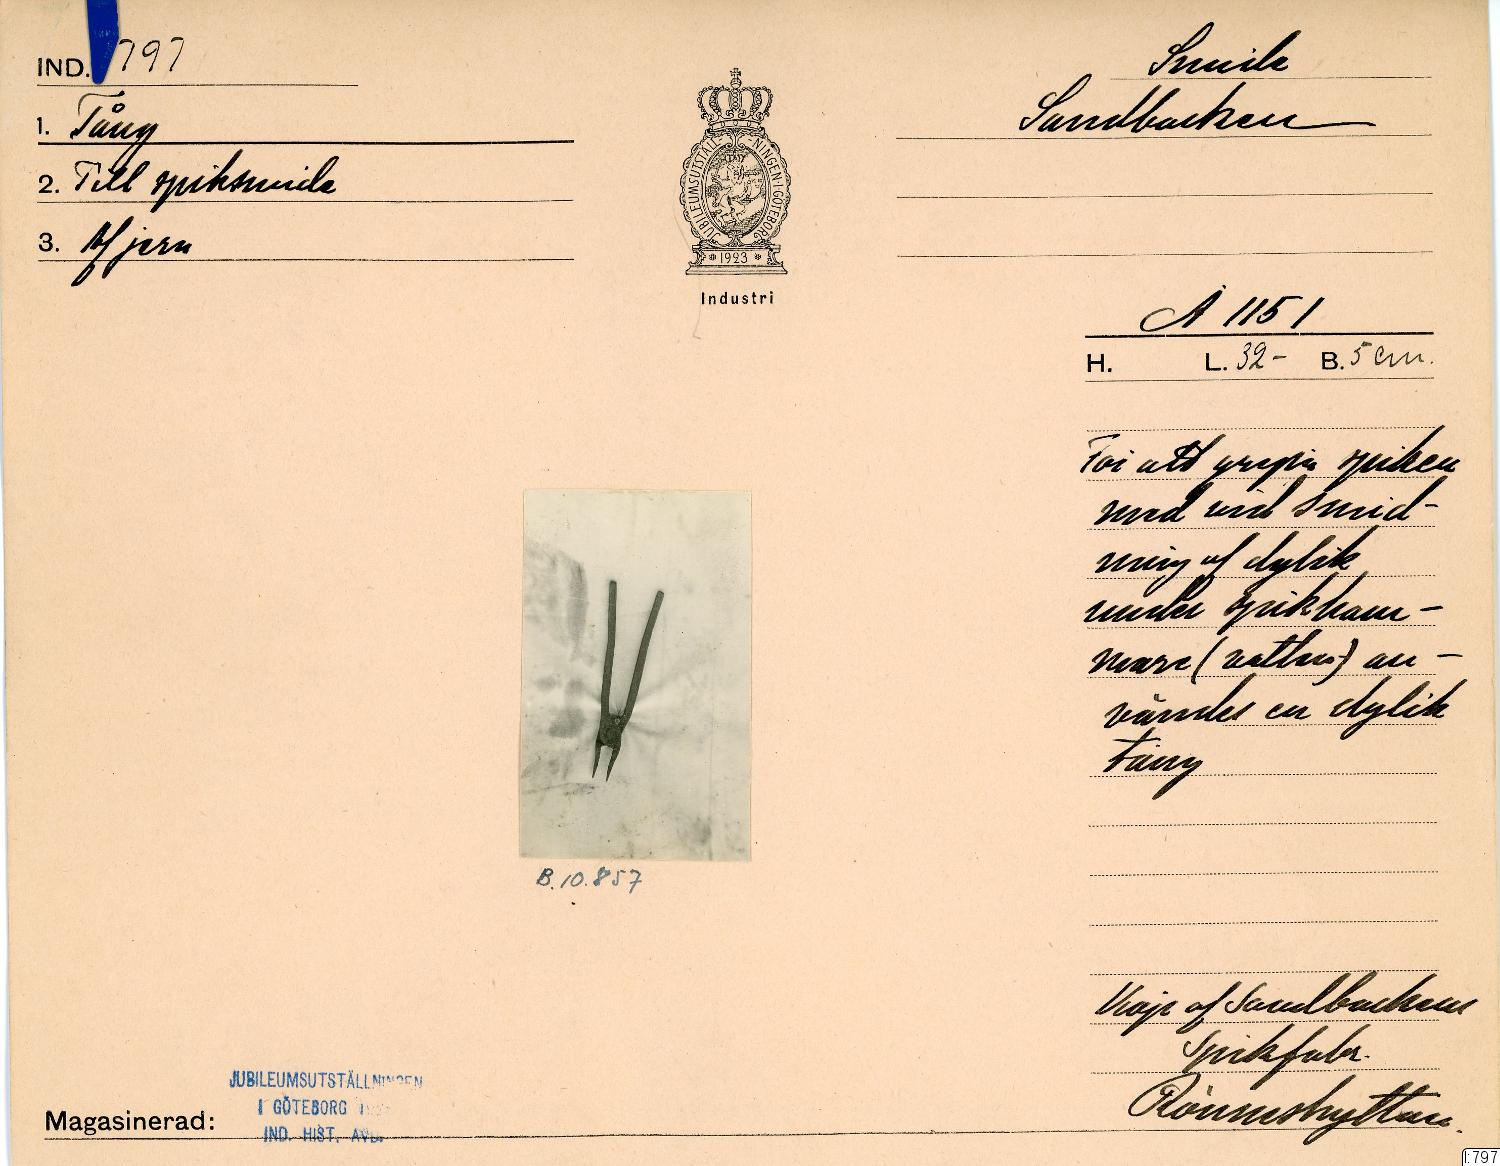 IND. 797
1. Tång
2. Till spiksmide
3. Af jern
JUBILEUMSUTSTÄLLNINGEN I GÖTEBORG
1923
Industri
Smide
Sandbacken
A 1151
H. L. 32- B. 5 cm.
För att gripa spiken
med vid smid-
ning af dylik
under spikham-
mare (vatten) an-
vändes en dylik
tång
B.10.857
Köpt af Sandbackens
Spikfabr.
Rönneshyttan.
JUBILEUMSUTSTÄLLNINGEN
I GÖTEBORG
IND. HIST. AVD.
Magasinerad:
I:797